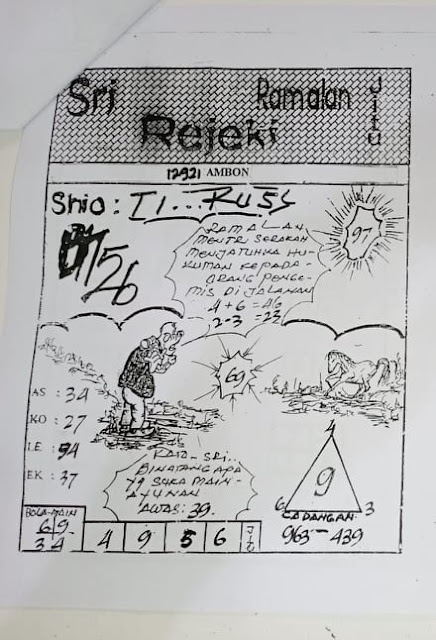 Sri
Ramalan
Jitu
Rejeki
12921 AMBON
Shio : TI...RUSS
RAMALAN
MENTRI SERAKAH
MENJATUHKA HU-
KUMAN KEPADA
ORANG PENGE-
MIS DI JALANAN
4+6=46
2-3=23
97
69
AS : 34
KO : 27
LE : 94
EK : 37
RATO-SRI..
BINATANG APA
YG SUKA MAIN-
AYUNAN
AWAS: 39.
4
9
6 3
CADANGAN
963-439
BOLA-MAIN
6 9
3 4
4 9 5 6 JITU